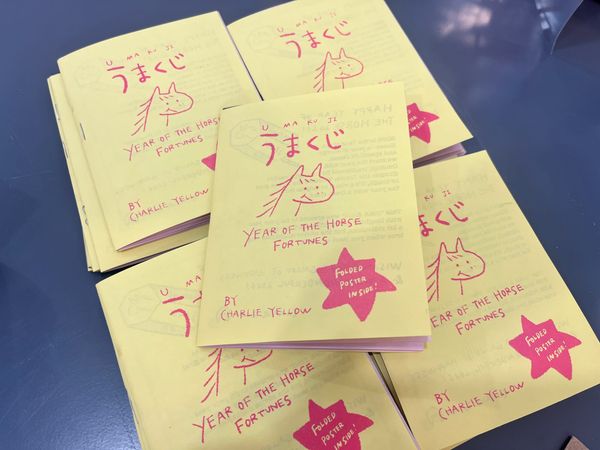 U MA KU JI
うまくじ
YEAR OF THE HORSE
FORTUNES
BY
CHARLIE YELLOW
U MA KU JI
うまくじ
FOLDED
POSTER
INSIDE!
U MA KU JI
うまくじ
YEAR OF THE HORSE
FORTUNES
FOLDED
POSTER
INSIDE!
BY
CHARLIE YELLOW
KU JI
まくじ
YEAR OF THE HORSE
FORTUNES
FOLDED
POSTER
INSIDE!
BY
CHARLIE YELLOW
U
う
YEAR OF THE HORSE
FORTUNES
FOLDED
POSTER
INSIDE!